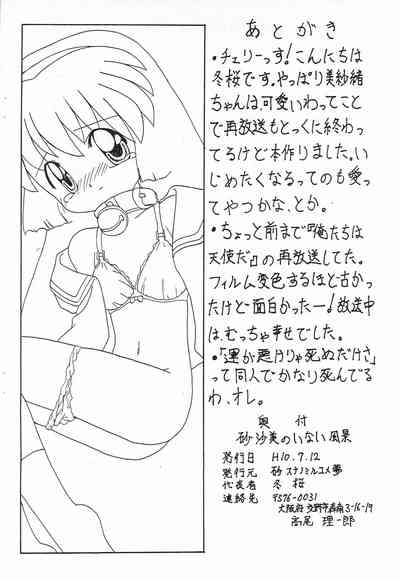 あとがき
・チェリーっす!こんにちは
冬桜です。やっぱり美紗緒
ちゃんは可愛いわってこと
で再放送もとっくに終わっ
てるけど本作りました。い
じめたくなるってのも愛っ
てやつかな、とか。
・ちょっと前まで『俺たちは
天使だ』の再放送してた。
フィルム変色するほど古かっ
たけど面白かったー!放送中
は、むっちゃ幸せでした。
・「運が悪けりゃ死ぬだけさ」
って同人でかなり死んでる
わ、オレ。
奥付
砂沙美のいない風景
発行日 H10.7.12
発行元 砂スナノミルユメ夢
代表者 冬桜
連絡先 〒576-0031
大阪府交野市森南3-16-19
高尾理一郎